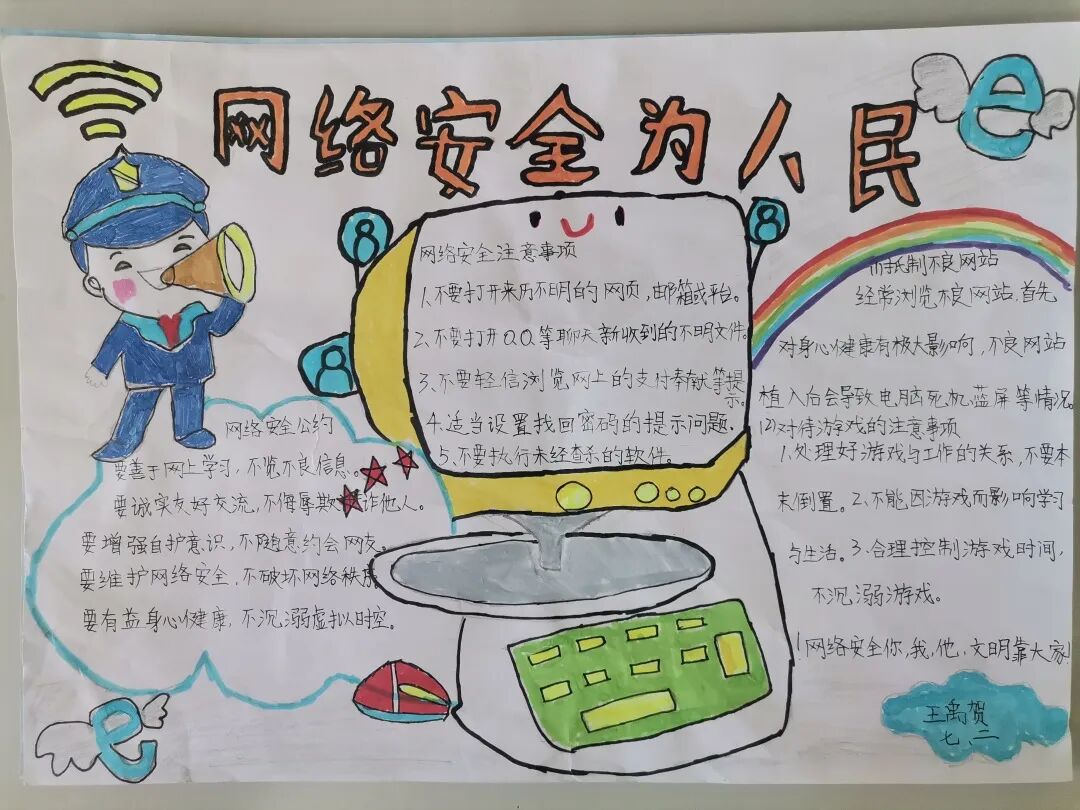 网络安全为人民
网络安全注意事项
1、不要打开来历不明的网页，邮箱或平台。
2、不要打开QQ等聊天新收到的不明文件。
3、不要轻信浏览网上的支付奉献等提示。
4、适当设置找回密码的提示问题.
5、不要执行未经查杀的软件。
网络安全公约
要善于网上学习，不览不良信息。
要诚实友好交流，不侮辱欺诈他人。
要增强自护意识，不随意约会网友。
要维护网络安全，不破坏网络秩序
要有益身心健康，不沉溺虚拟时空。
(1)抵制不良网站
经常浏览不良网站，首先
对身心健康有极大影响，不良网站
植入后会导致电脑死机，蓝屏等情况。
(2)对待游戏的注意事项
1、处理好游戏与工作的关系，不要本
末倒置。2、不能因游戏而影响学习
与生活。3、合理控制游戏时间，
不沉溺游戏。
!网络安全你，我，他，文明靠大家!
王禹贺
七、二